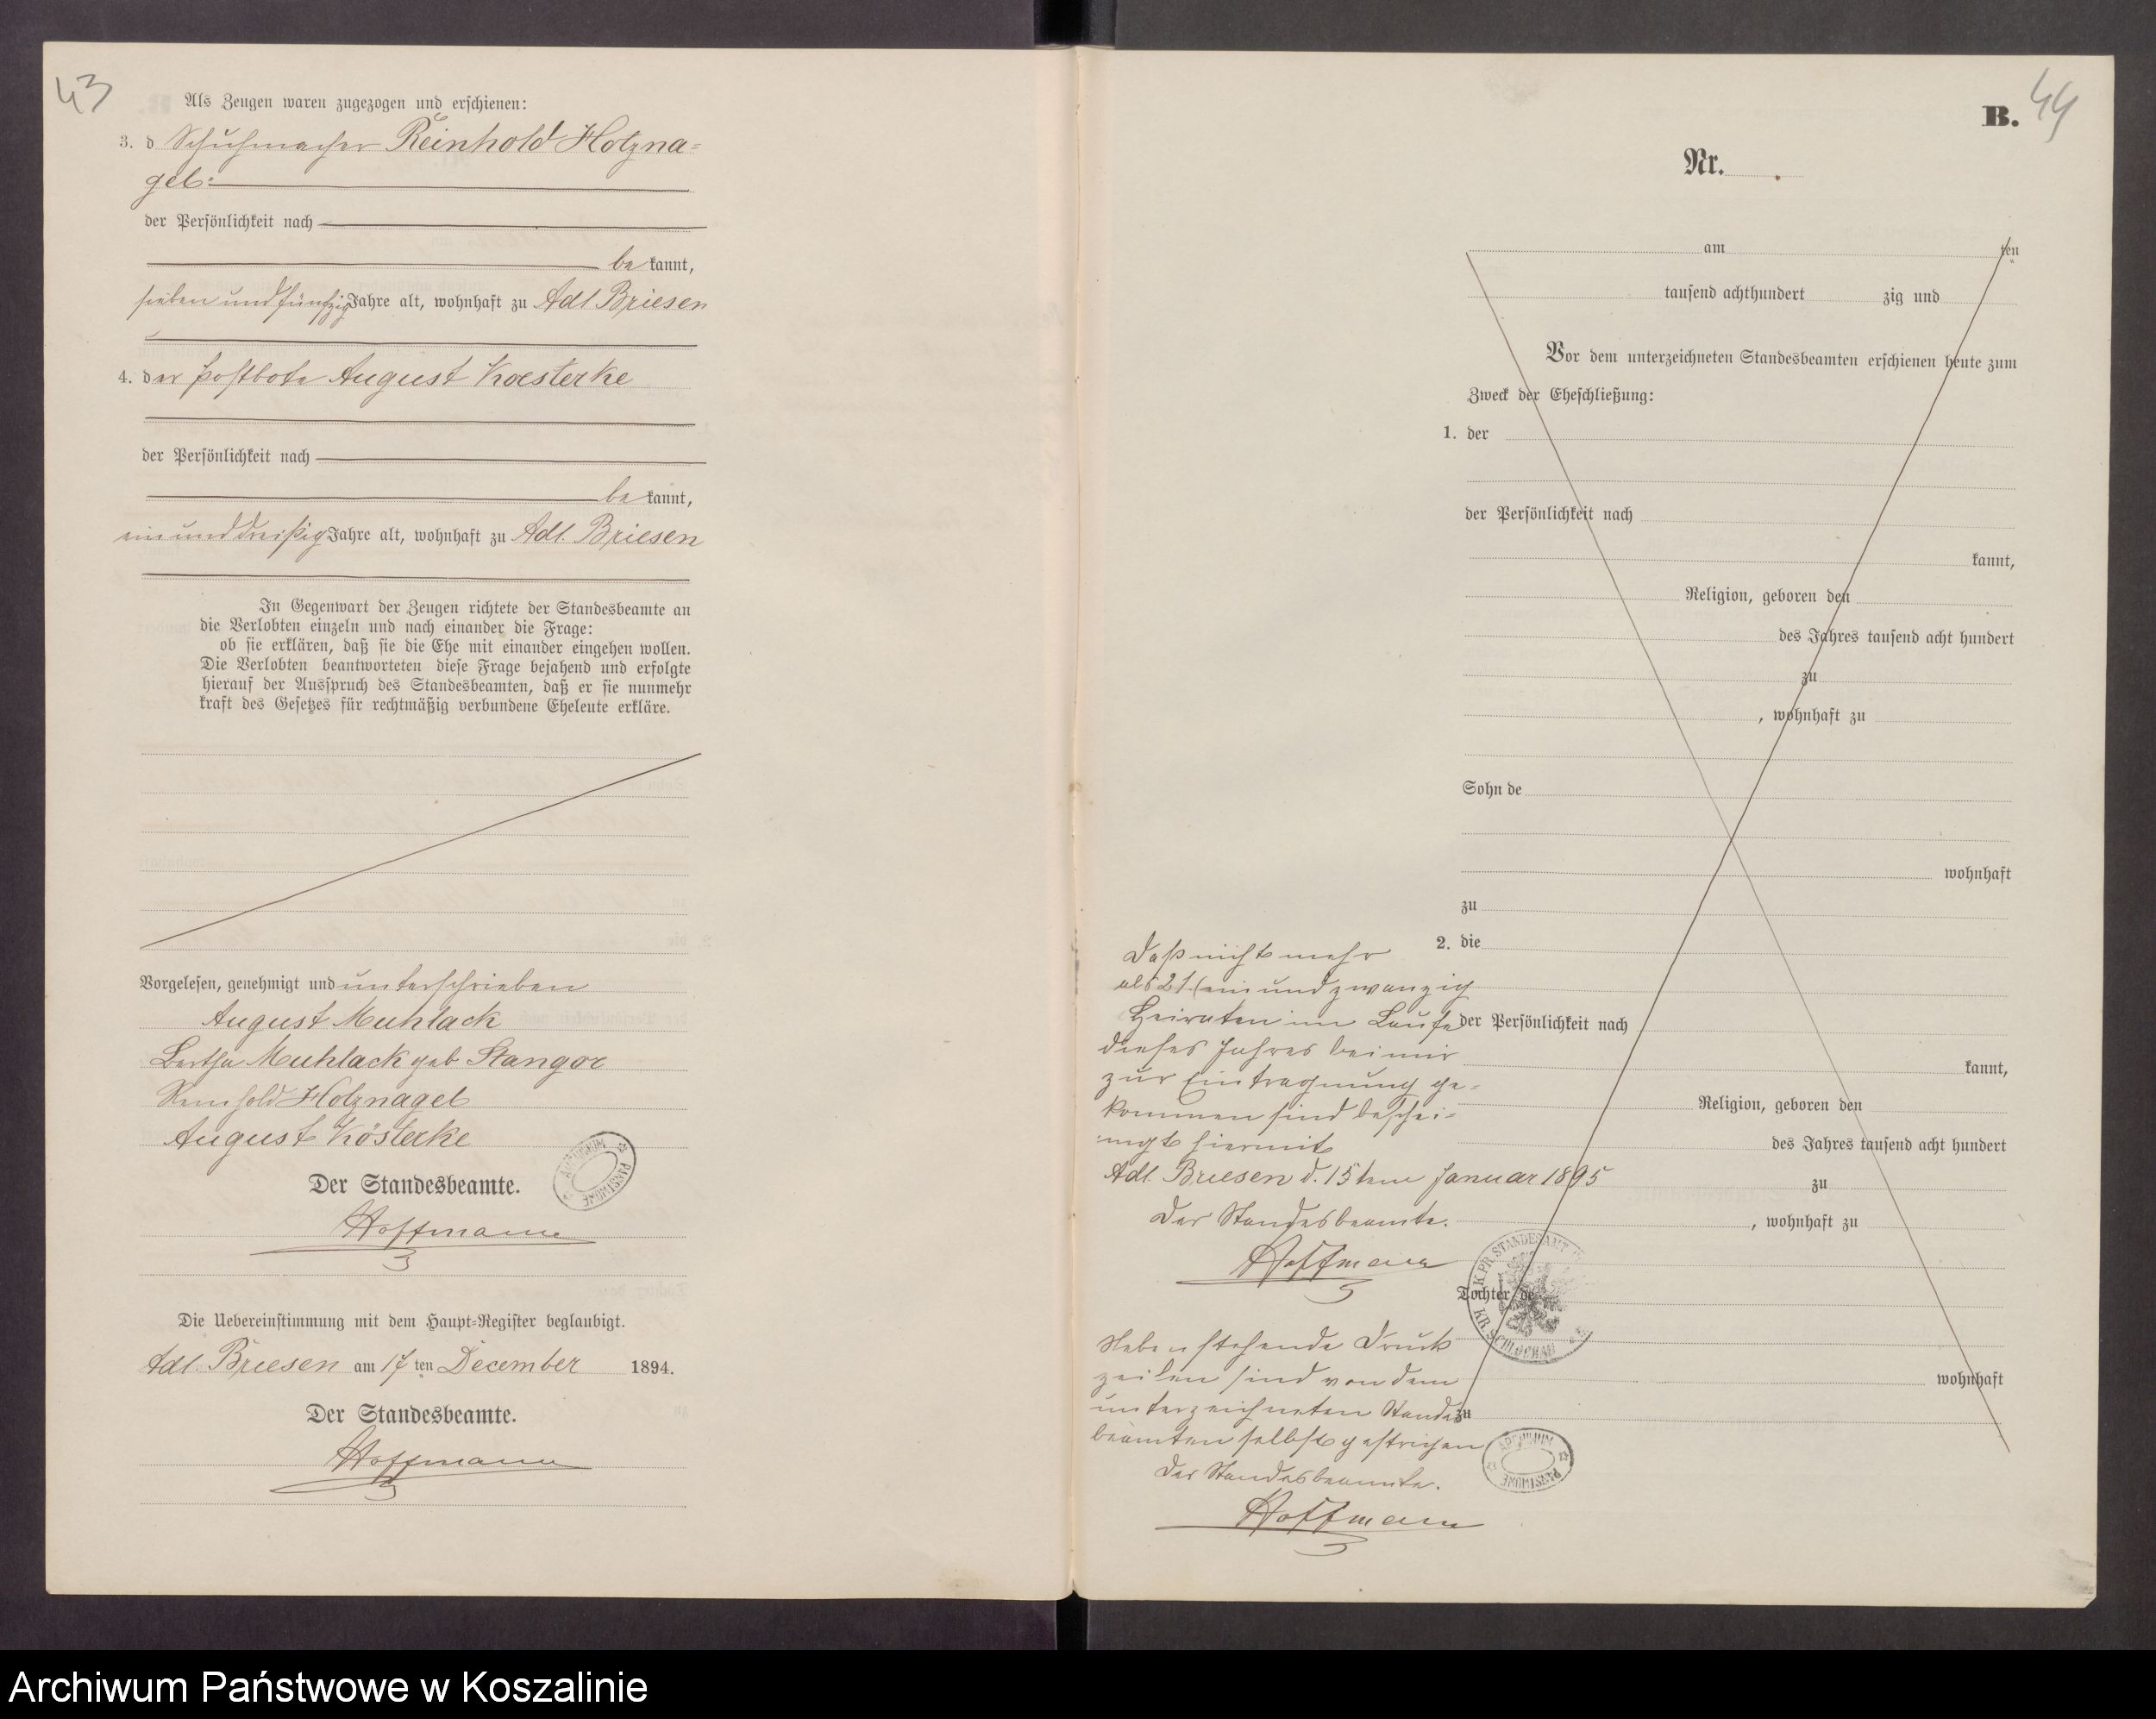 43
Als Zeugen waren zugezogen und erschienen:
3. d Schuhmacher Reinhold Holzna=
gel
der Persönlichkeit nach
be kannt,
sieben und fünfzig Jahre alt, wohnhaft zu Adl Briesen
4. der Postbote August Koesterke
der Persönlichkeit nach
be kannt,
ein und dreißig Jahre alt, wohnhaft zu Adl. Briesen
In Gegenwart der Zeugen richtete der Standesbeamte an
die Verlobten einzeln und nach einander die Frage:
ob sie erklären, daß sie die Ehe mit einander eingehen wollen.
Die Verlobten beantworteten diese Frage bejahend und erfolgte
hierauf der Ausspruch des Standesbeamten, daß er sie nunmehr
kraft des Gesetzes für rechtmäßig verbundene Eheleute erkläre.
Vorgelesen, genehmigt und unterschrieben
August Muhlack
Bertha Muhlack geb Stangor
Reinhold Holznagel
August Kösterke
ARCHIWUM PAŃSTWOWE
Der Standesbeamte.
Hoffmann
Die Uebereinstimmung mit dem Haupt-Register beglaubigt.
Adl. Briesen am 17 ten December 1894.
Der Standesbeamte.
Hoffmann
B. 44
Nr.
am ten
tausend achthundert zig und
Vor dem unterzeichneten Standesbeamten erschienen heute zum
Zweck der Eheschließung:
1. der
der Persönlichkeit nach
kannt,
Religion, geboren den
des Jahres tausend acht hundert
zu
, wohnhaft zu
Sohn de
wohnhaft
zu
2. die
der Persönlichkeit nach
kannt,
Religion, geboren den
des Jahres tausend acht hundert
zu
, wohnhaft zu
Tochter de
wohnhaft
zu
Daß nicht mehr
als 21 (ein und zwanzig
Heiraten im Laufe
dieses Jahres bei mir
zur Eintragung ge=
kommen sind beschei=
nigt hiermit
Adl. Briesen d. 15ten Januar 1895
Der Standesbeamte.
Hoffmann
K. PR. STANDESAMT
KR. SCHLOCHAU
Nebenstehende Druck
zeilen sind von dem
unterzeichneten Standes
beamten selbst gestrichen
Der Standesbeamte.
Hoffmann
ARCHIWUM PAŃSTWOWE
Archiwum Państwowe w Koszalinie